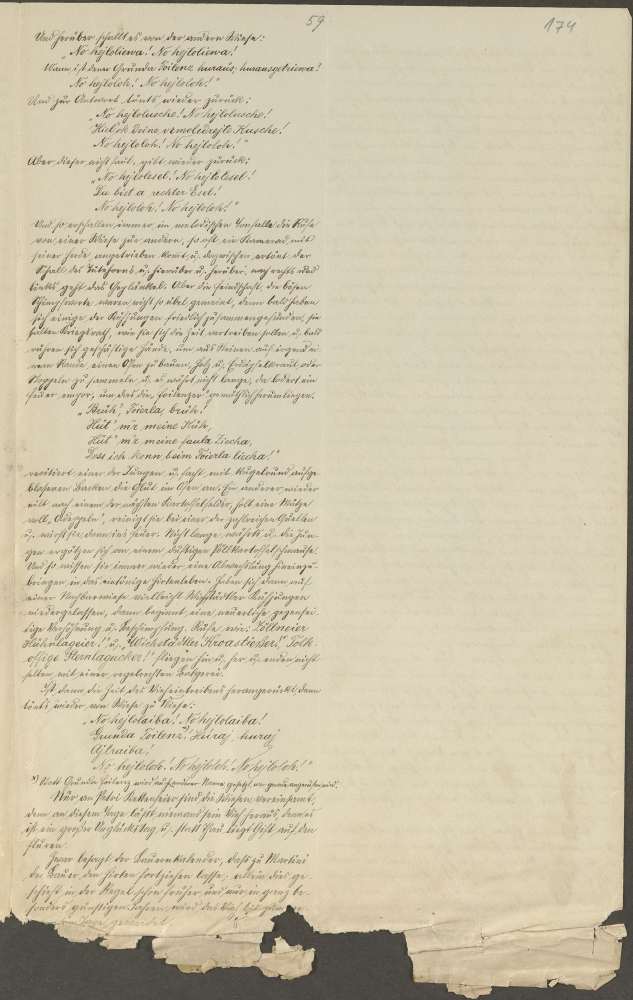 59
174
Und herüber schallt es von der andern Wiese:
„No hejloliewa! No hejloliewa!
Wann ist denn Grunda Toilenz huraus, hurausgetriewa?
No hejloloh! No hejloloh!"
Und zur Antwort tönts wieder zurück:
„No hejlolusche! No hejlolusche!
Halt ok Deine Kusche!
No hejloloh! No hejloloh!"
Aber dieser nicht faul, gibt wieder zurück:
„No hejlolesel! No hejlolesel!
Du bist a rechter Esel!
No hejloloh! No hejloloh!"
Und so erschallen immer im melodischen Tonfalle die Rufe
von einer Wiese zur andern, so oft ein Kamerad mit
seiner Herde angetrieben komt u. dazwischen ertönt der
Schall des Tutehorns u. hierüber u. herüber, nach rechts und
links geht das Geplänkel. Aber die Feindschaft, die bösen
Schimpfworte waren nicht so übel gemeint, denn bald haben
sich einige der Kuhjungen friedlich zusammengefunden, sie
halten Kriegsrath, wie sie sich die Zeit vertreiben sollen, u. bald
rühren sich geschäftige Hände, um aus Steinen auf irgend ei-
nem Rande einen Ofen zu bauen, Holz u. Erdäpfelkraut oder
Stoppeln zu sammeln u. es währt nicht lange, da lodert ein
Feuer empor, um das die gemüthlich herumliegen.
„Brüh', Foierla, brüh!
Hüt' m'r meine Küh,
Hüt' m'r meine faula Ziecha,
Doss ich konn beim Foierla liecha!"
recitiert einer der Jungen u. facht mit kugelrund aufge-
blasenen Backen die Glut im Ofen an. Ein anderer wieder
eilt nach einem der nächsten Kartoffelfelder, holt eine Mütze
voll „Adeppeln", reinigt sie bei einer der zahlreichen Quellen
u. wirft sie dann ins Feuer. Nicht lange währts u. die Jun-
gen ergötzen sich an einem duftigen Vollkartoffelschmause.
Und so wissen sie immer wieder eine Abwechslung hineinzu-
bringen in das eintönige Hirtenleben. Haben sich dann auf
einer Nachbarwiese vielleicht Wigstadtler Kuhjungen
niedergelassen, dann beginnt eine neuerliche gegensei-
tige Verhöhnung u. Beschimpfung. Rufe wie:
Hühnlageier!" u. „Wichstadtler
Sternlagucker!" fliegen hin u. her u. enden nicht
selten mit einer regelrechten Balgerei.
Ist dann die Zeit des Vieheintreibens herangerückt, dann
tönts wieder von Wiese zu Wiese:
„No hejlolaiba! No hejlolaiba!
Grunda Toilenz! Huraj, huraj
Ajtraiba!
No hejloloh! No hejloloh! No hejloloh!"
x) Statt Grunda Toilenz wird auch anderer Name gesetzt, wer gerade angerufen wird.
Nur an Petri Kettenfeier sind die Wiesen vereinsamt,
denn an diesem Tage läßt niemand sein Vieh heraus, denn es
ist ein großer Unglückstag u. statt Thau liegt Gift auf den
Fluren.
Zwar besagt der Bauernkalender, daß zu Martini
der Bauer den Hirten fortziehen lasse; allein dies ge-
schieht in der Regel schon früher und nur in ganz be-
sonders günstigen Jahren wird das Vieh bis zu